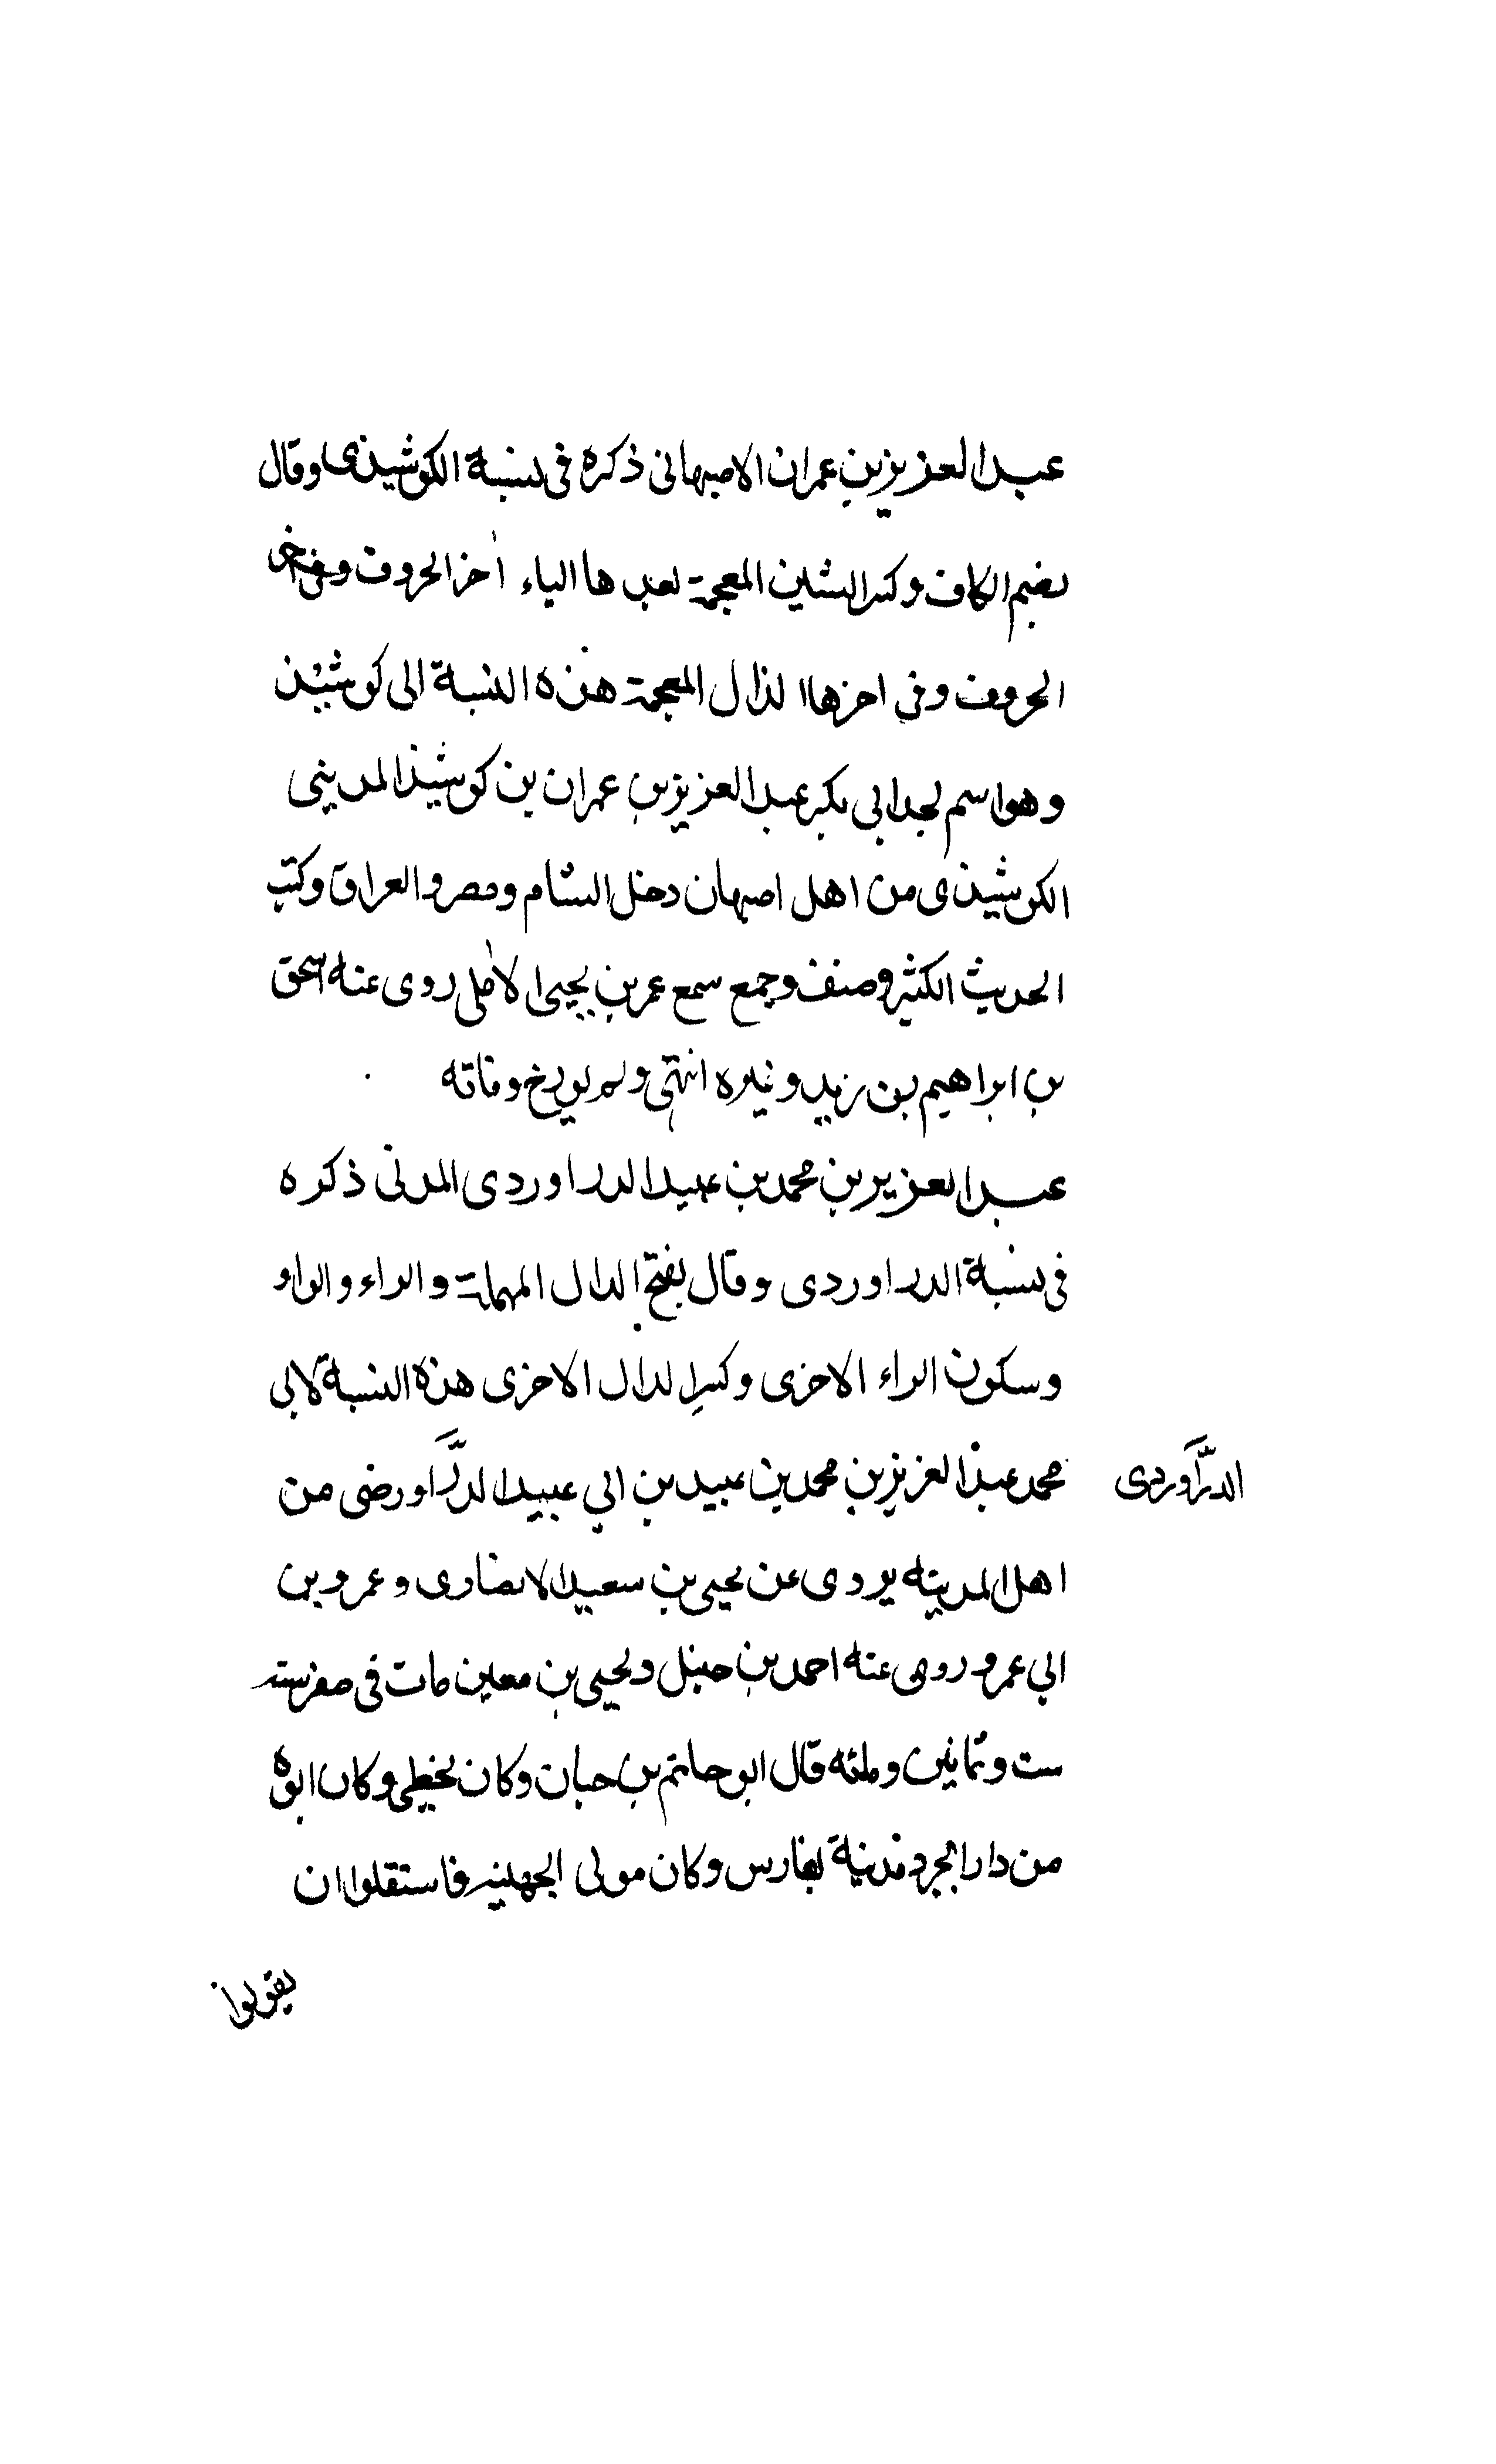 عبد العزيز بن عمران الاصبهانى ذكره فى نسبة الكوشيذى وقال
بضم الكاف وكسر الشين المعجمة بعدها الياء آخر الحروف وفى اخر
الحروف وفى اخرها الذال المعجمة هذه النسبة الى كوشيذ
وهو اسم لجد ابى بكر عبد العزيز بن عمران بن كوشيذ المدينى
الكوشيذى من اهل اصبهان دخل الشام ومصر والعراق وكتب
الحديث الكثير وصنف وجمع سمع عمر بن يحيى الآملى روى عنه اسحق
بن ابراهيم بن زيد وغيره انتهى ولم يورخ وفاته
عبد العزيز بن محمد بن عبيد الدراوردى المدنى ذكره
فى نسبة الدراوردى وقال بفتح الدال المهملة والراء والواو
وسكون الراء الاخرى وكسر الدال الاخرى هذه النسبة لابى
الدَّرَاوردى
محمد عبد العزيز بن محمد بن عبيد بن ابي عبيد الدَّرَاورضى من
اهل المدينه يروى عن يحيى بن سعيد الانصارى وعمرو بن
ابي عمرو روى عنه احمد بن حنبل ويحيى بن معين مات فى صفر سنة
ست وثمانين ومائه قال ابو حاتم بن حبان وكان يخطى وكان ابوه
من دارابجرد مدينة بفارس وكان مولى الجهينه فاستقلوا ان
يقولوا